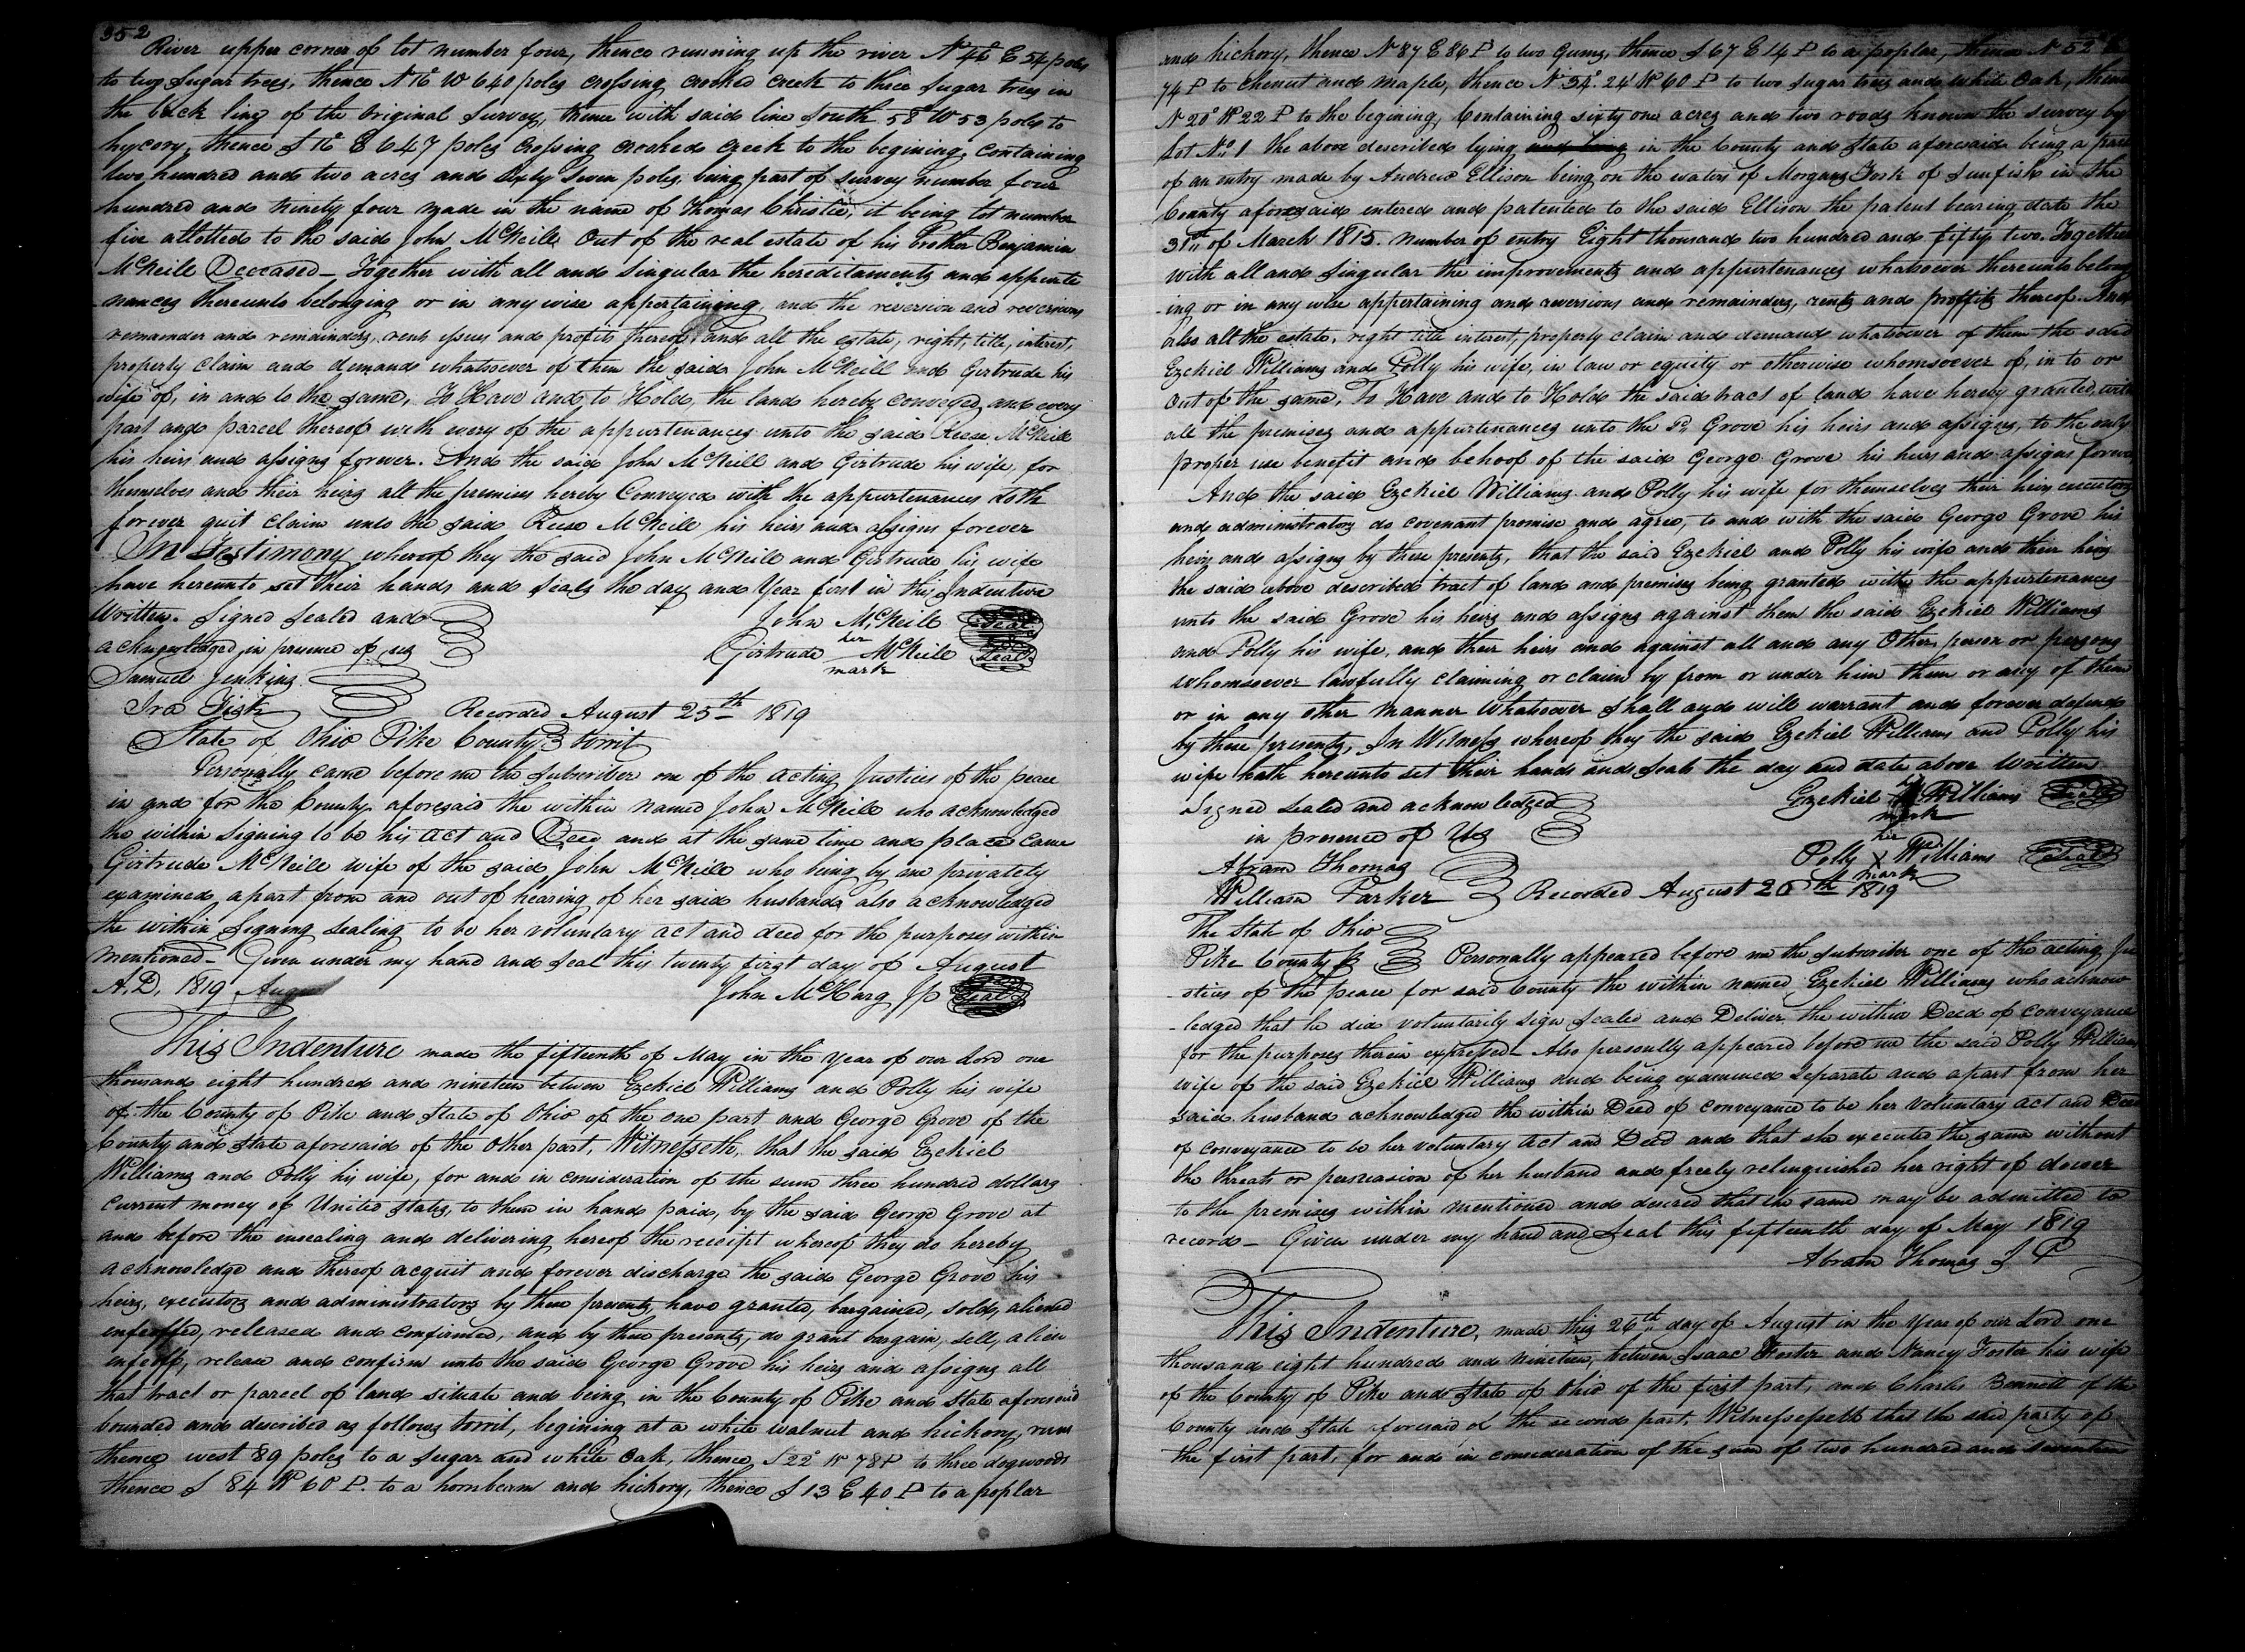 352
River upper corner of lot number four, thence running up the river N 42° E 54 poles
to two Sugar trees, thence N 16° W 640 poles crossing crooked creek to three Sugar trees in
the back line of the Original Survey, thence with said line South 58° W 53 poles to
hyccory, thence S 16° E 647 poles Crossing crooked creek to the begining, containing
two hundred and two acres and Sixty Seven poles, being part of survey number four
hundred and Ninety four Made in the name of Thomas Christie, it being lot number
five allotted to the said John McNeill out of the real estate of his brother Benjamin
McNeill Deceased - Together with all and Singular the hereditaments and appurte
nances thereunto belonging or in any wise appertaining, and the reversion and reversions
remainder and remainders, rents issues and profits thereof, and all the estate, right, title, interest,
property claim and demand whatsoever of them the said John McNeill and Girtrude his
wife of, in and to the same, To Have and to Hold, the land hereby conveyed and every
part and parcel thereof with every of the appurtenances unto the said Reese McNeill
his heirs and assigns forever. And the said John McNeill and Girtrude his wife, for
themselves and their heirs all the premises hereby Conveyed with the appurtenances doth
forever quit claim unto the said Reese McNeill his heirs and assigns forever
In Testimony whereof they the said John McNeill and Girtrude his wife
have hereunto set their hands and Seals the day and Year first in this Indenture
Written. Signed Sealed and John McNeill Seal
acknowledged in presence of us her
Girtrude McNeill Seal
mark
Samuel Jenkins
Ira Fisk Recorded August 25th 1819
State of Ohio Pike County towit
Personally came before me the Subscriber one of the acting Justices of the peace
in and for the County aforesaid the within Named John McNeill who acknowledged
the within Signing to be his act and Deed and at the same time and place Came
Girtrude McNeill wife of the said John McNeill who being by me privately
examined apart from and out of hearing of her said husband also acknowledged
the within Signing Sealing to be her voluntary act and deed for the purposes within
mentioned - Given under my hand and Seal this twenty first day of August
A.D. 1819 Augu John McHarg JP Seal
This Indenture made the fifteenth of May in the year of our Lord one
thousand eight hundred and nineteen betwen Ezekiel Williams and Polly his wife
of the County of Pike and State of Ohio of the one part and George Grove of the
County and State aforesaid of the Other part, Witnesseth, that the said Ezekiel
Williams and Polly his wife, for and in consideration of the sum three hundred dollars
Current money of United States, to them in hand paid, by the said George Grove at
and before the ensealing and delivering hereof the receipt whereof they do hereby
acknowledge and thereof acquit and forever discharge the said George Grove his
heirs, executors and administrators by these presents, have granted, bargained, sold, aliened
enfeoffed, released and confirmed, and by these presents, do grant bargain, sell, alien
enfeoff, release and confirm unto the said George Grove his heirs and assigns all
that tract or parcel of land situate and being in the County of Pike and State aforesaid
bounded and described as follows towit, begining at a white walnut and hickory, runs
thence west 89 poles to a Sugar and white Oak, thence S 22° W 78 P to three dogwoods
thence S 84 W 60 P. to a hornbeam and hickory, thence S 13 E 40 P to a poplar
and hickory, thence N 87 E 86 P to two Gums, thence S 67 E 14 P to a poplar, thence N 52° E
74 P to Chesnut and Maple, thence N 34° 24' W 60 P to two Sugar trees and white Oak, thence
N 20° W 22 P to the begining, Containing sixty one acres and two roods known the survey by
Lot No. 1 the above described lying and being in the County and State aforesaid being a part
of an entry made by Andrew Ellison being on the waters of Morgans Fork of Sunfish in the
County aforesaid entered and patented to the said Ellison the patent bearing date the
31st of March 1815. Number of entry Eight thousand two hundred and fifty two. Together
with all and singular the improvements and appurtenances whatsoever thereunto belong
ing or in any wise appertaining and reversions and remainders, rents and proffits thereof. And
also all the estate, right title interest, property claim and demand whatsoever of them the said
Ezekiel Williams and Polly his wife, in law or equity or otherwise whomsoever of, in to or
out of the same, To Have and to Hold the said tract of land have hereby granted, with
all the premises and appurtenances unto the sd. Grove his heirs and assigns, to the only
proper use benefit and behoof of the said George Grove his heirs and assigns forever
And the said Ezekiel Williams and Polly his wife for themselves their heirs executors
and administrators do covenant promise and agree, to and with the said George Grove his
heirs and assigns by these presents, that the said Ezekiel and Polly his wife and their heirs
the said above described tract of land and premises being granted with the appurtenances
unto the said Grove his heirs and assigns against them the said Ezekiel Williams
and Polly his wife, and their heirs and against all and any Other person or persons
whomsoever lawfully claiming or claim by from or under him them or any of them
or in any other Manner Whatsoever Shall and will warrant and forever defend
by these presents, In Witness whereof they the said Ezekiel Williams and Polly his
wife hath hereunto set their hands and Seals the day and date above Written
Signed Sealed and acknowledged Ezekiel Williams Seal
mark
in presence of Us her
Abram Thomas Polly X Williams Seal
mark
William Parker Recorded August 26th 1819
The State of Ohio
Pike County ss Personally appeared before me the Subscriber one of the acting Ju
stices of the peace for said County the within named Ezekiel Williams who acknow
ledged that he did voluntarily sign Sealed and Deliver the within Deed of conveyance
for the purposes therein expressed - Also personlly appeared before me the said Polly Williams
wife of the said Ezekiel Williams and being examined Separate and apart from her
said husband acknowledged the within Deed of conveyance to be her voluntary act and Deed
of conveyance to be her voluntary act and Deed and that she executed the same without
the threats or persuasion of her husband and freely relinquished her right of dower
to the premises within mentioned and desired that the same may be admitted to
record - Given under my hand and Seal this fifteenth day of May 1819
Abram Thomas J P
This Indenture, made this 26th day of August in the Year of our Lord one
thousand eight hundred and nineteen, between Isaac Foster and Nancy Foster his wife
of the County of Pike and State of Ohio of the first part, and Charles Bennett of the
County and State aforesaid of the second part, Witnessesseth that the said party of
the first part, for and in consideration of the sum of two hundred and seventeen